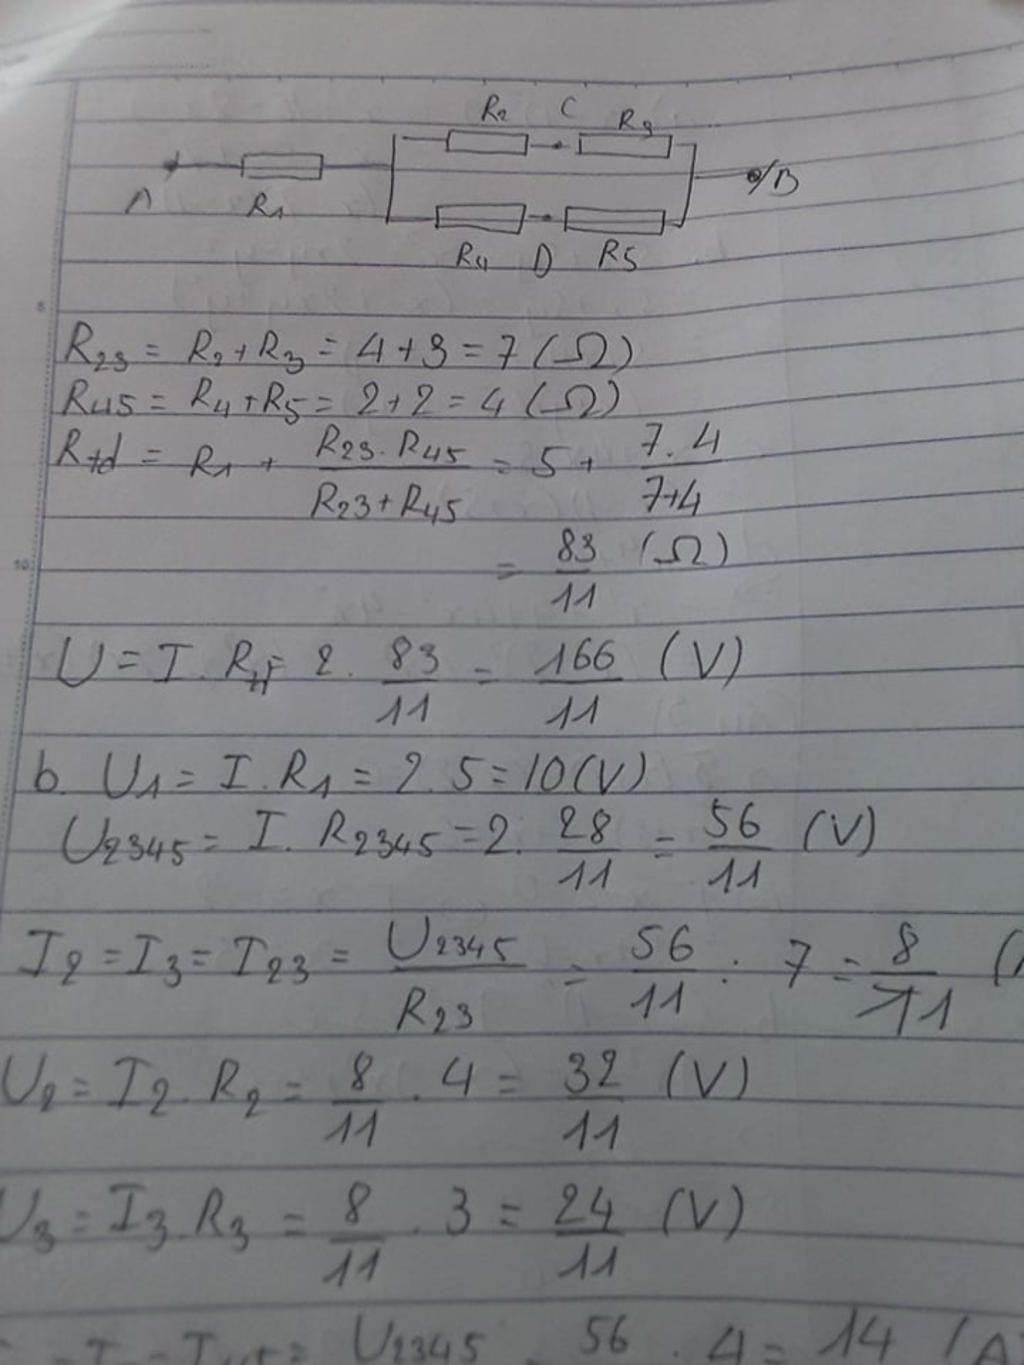 R2 C R3
A R1 B
R4 D R5
R23 = R2 + R3 = 4 + 3 = 7 (Ω)
R45 = R4 + R5 = 2 + 2 = 4 (Ω)
Rtđ = R1 + R23 . R45 / R23 + R45 = 5 + 7 . 4 / 7 + 4
= 83/11 (Ω)
U = I . Rtđ = 2 . 83/11 = 166/11 (V)
b. U1 = I . R1 = 2 . 5 = 10 (V)
U2345 = I . R2345 = 2 . 28/11 = 56/11 (V)
I2 = I3 = I23 = U2345 / R23 = 56/11 : 7 = 8/11
U2 = I2 . R2 = 8/11 . 4 = 32/11 (V)
U3 = I3 . R3 = 8/11 . 3 = 24/11 (V)
U2345 56 4 = 14 (A
5
10